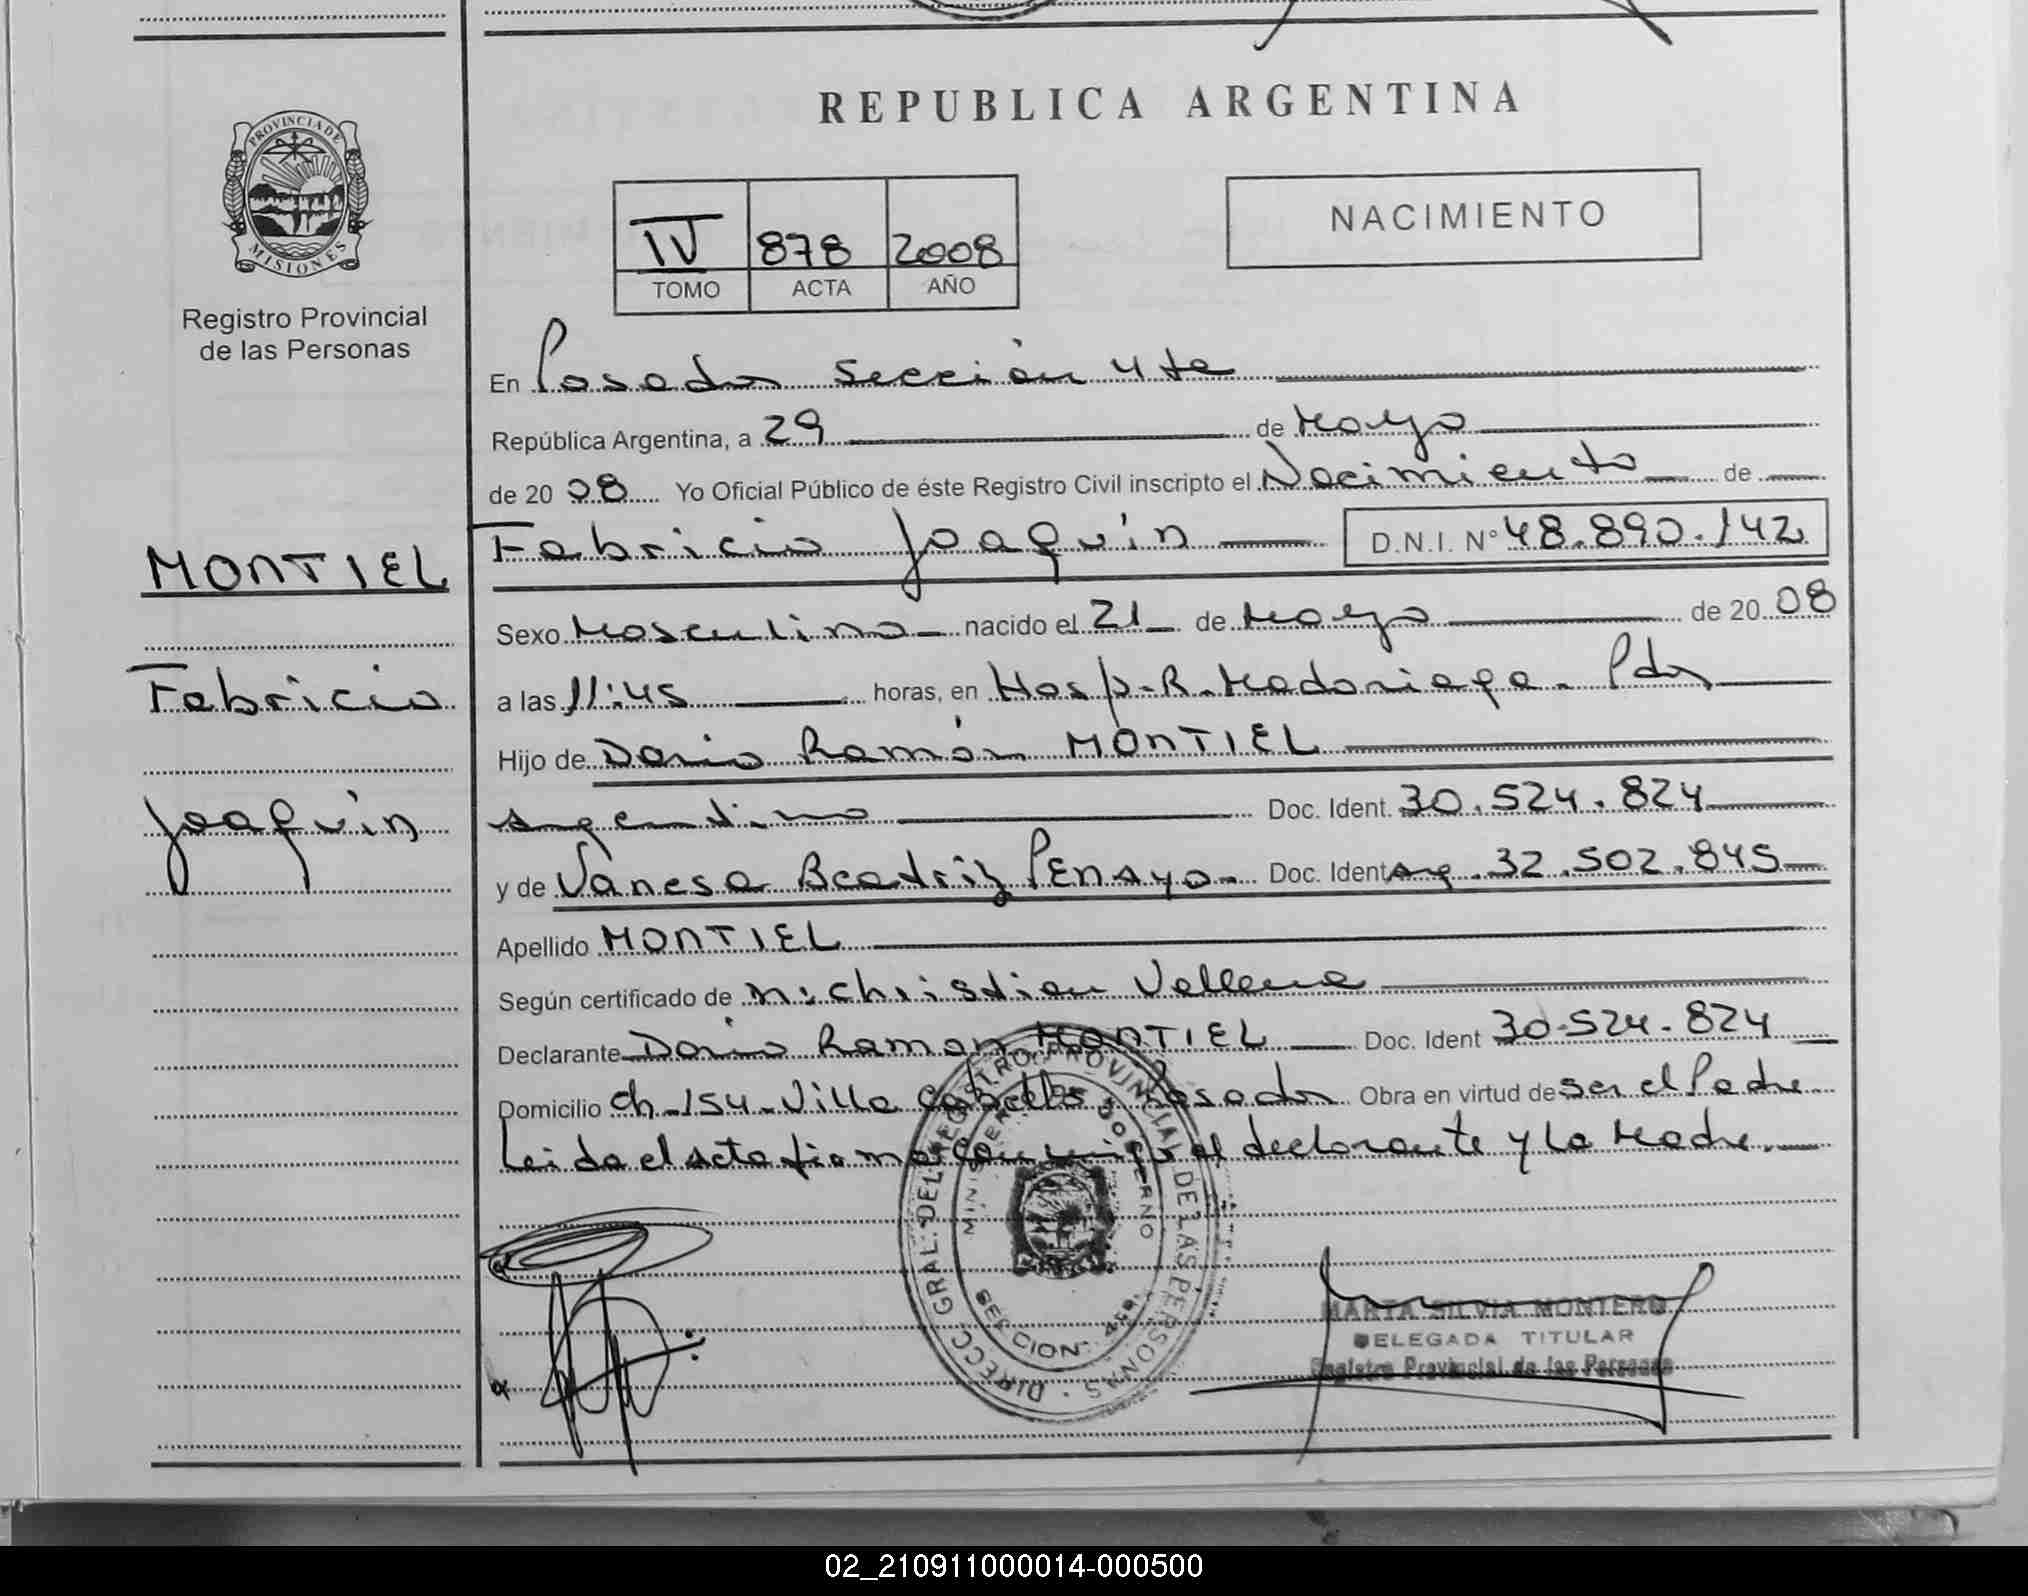 REPUBLICA ARGENTINA
PROVINCIA DE MISIONES
Registro Provincial
de las Personas
IV 878 2008
TOMO ACTA AÑO
NACIMIENTO
En Posadas Sección 4ta
República Argentina, a 29 de Mayo
de 20 08 Yo Oficial Público de éste Registro Civil inscripto el Nacimiento de
Fabricio Joaquín D.N.I. N° 48.890.142
MONTIEL
Fabricio
Joaquín
Sexo Masculino nacido el 21 de Mayo de 20 08
a las 11:45 horas, en Hosp. R. Madariaga. Pdas
Hijo de Dario Ramón MONTIEL
Argentino Doc. Ident. 30.524.824
y de Vanesa Beatriz PENAYO. Doc. Ident Arg. 32.502.845
Apellido MONTIEL
Según certificado de Christian
Declarante Dario Ramon MONTIEL Doc. Ident 30.524.824
Domicilio Ch. 154 - Villa Cabello - Posadas Obra en virtud de ser el Padre
Leida el acta firma conmigo el declarante y la Madre.
DIRECC. GRAL. DEL REGISTRO PROVINCIAL DE LAS PERSONAS
MINISTERIO DE GOBIERNO
SECCION 4ta.
MARTA SILVIA MONTERO
DELEGADA TITULAR
Registro Provincial de las Personas
02_210911000014-000500